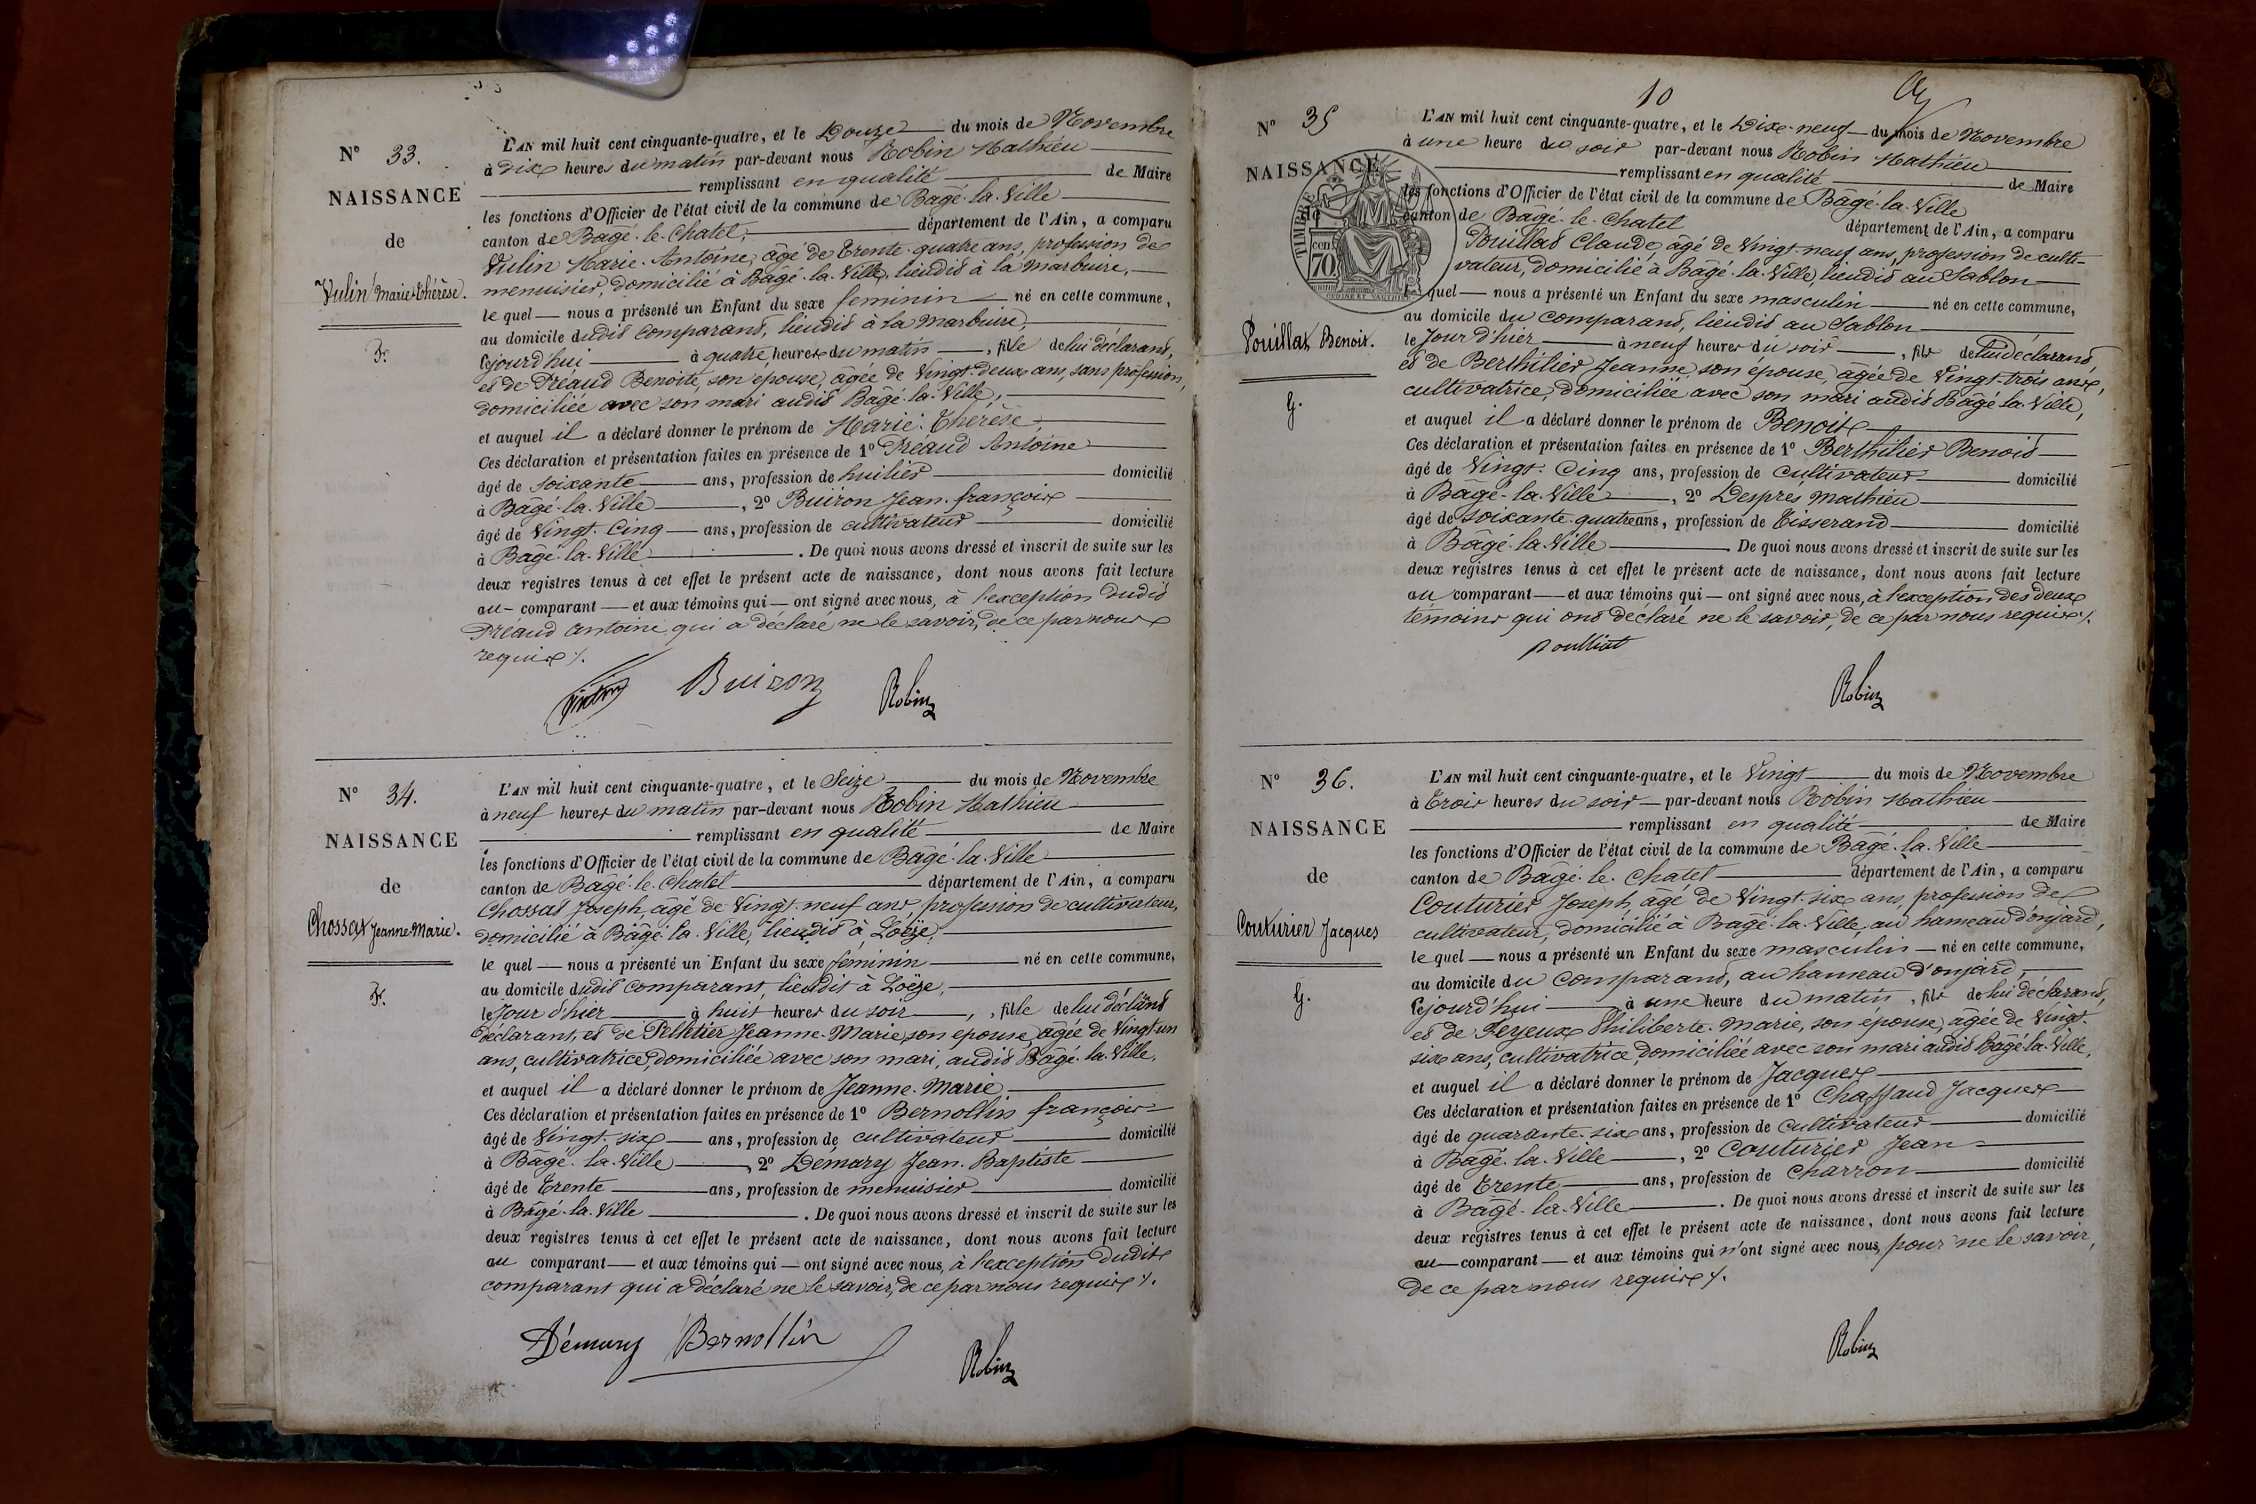 N° 33.
NAISSANCE
de
Vulin Marie Thérèse.
F.
L'AN mil huit cent cinquante-quatre, et le Douze du mois de Novembre
à dix heures du matin par-devant nous Robin Mathieu
remplissant en qualité de Maire
les fonctions d'Officier de l'état civil de la commune de Bâgé-la-Ville
canton de Bâgé-le-Chatel, département de l'Ain, a comparu
Vulin Marie-Antoine, âgé de Trente-quatre ans, profession de
menuisier, domicilié à Bâgé-la-Ville, lieudit à la Marbuire,
le quel nous a présenté un Enfant du sexe féminin né en cette commune,
au domicile dudit comparant, lieudit à la Marbuire,
cejourd'hui à quatre heures du matin, fille de lui déclarant,
et de Préaud Benoite, son épouse, âgée de Vingt-deux ans, sans profession,
domiciliée avec son mari audit Bâgé-la-Ville,
et auquel il a déclaré donner le prénom de Marie-Thérèse.
Ces déclaration et présentation faites en présence de 1° Préaud Antoine
âgé de soixante ans, profession de huilier domicilié
à Bâgé-la-Ville, 2° Buiron Jean-françois
âgé de Vingt-Cinq ans, profession de cultivateur domicilié
à Bâgé-la-Ville. De quoi nous avons dressé et inscrit de suite sur les
deux registres tenus à cet effet le présent acte de naissance, dont nous avons fait lecture
au comparant et aux témoins qui ont signé avec nous, à l'exception dudit
Préaud Antoine qui a déclaré ne le savoir, de ce par nous
requis ./.
Buiron Robin
N° 34.
NAISSANCE
de
Chossat Jeanne-Marie.
F.
L'AN mil huit cent cinquante-quatre, et le Seize du mois de Novembre
à neuf heures du matin par-devant nous Robin Mathieu
remplissant en qualité de Maire
les fonctions d'Officier de l'état civil de la commune de Bâgé-la-Ville
canton de Bâgé-le-Chatel département de l'Ain, a comparu
Chossat Joseph, âgé de Vingt-neuf ans profession de cultivateur,
domicilié à Bâgé-la-Ville, lieudit à Loëze,
le quel nous a présenté un Enfant du sexe féminin né en cette commune,
au domicile dudit comparant, lieudit à Loëze,
le Jour d'hier à huit heures du soir, fille de lui déclarant
Déclarant, et de Pelletier Jeanne-Marie, son épouse, âgée de Vingt-un
ans, cultivatrice, domiciliée avec son mari, audit Bâgé-la-Ville,
et auquel il a déclaré donner le prénom de Jeanne-Marie
Ces déclaration et présentation faites en présence de 1° Bernollin françois
âgé de Vingt-six ans, profession de cultivateur domicilié
à Bâgé-la-Ville, 2° Démary Jean-Baptiste
âgé de Trente ans, profession de menuisier domicilié
à Bâgé-la-Ville. De quoi nous avons dressé et inscrit de suite sur les
deux registres tenus à cet effet le présent acte de naissance, dont nous avons fait lecture
au comparant et aux témoins qui ont signé avec nous, à l'exception dudit
comparant qui a déclaré ne le savoir, de ce par nous requis ./.
Démary Bernollin Robin
10
N° 35
NAISSANCE
de
TIMBRE
70 cen
Pouillat Benoit.
G.
L'AN mil huit cent cinquante-quatre, et le Dix-neuf du mois de Novembre
à une heure du soir par-devant nous Robin Mathieu
remplissant en qualité de Maire
les fonctions d'Officier de l'état civil de la commune de Bâgé-la-Ville
canton de Bâgé-le-Chatel département de l'Ain, a comparu
Pouillat Claude, âgé de Vingt-neuf ans, profession de culti-
vateur, domicilié à Bâgé-la-Ville, lieudit au Sablon
le quel nous a présenté un Enfant du sexe masculin né en cette commune,
au domicile du comparant, lieudit au Sablon
le Jour d'hier à neuf heures du soir, fils de lui déclarant,
et de Berthilier Jeanne, son épouse, âgée de Vingt-trois ans,
cultivatrice, domiciliée avec son mari audit Bâgé-la-Ville,
et auquel il a déclaré donner le prénom de Benoit
Ces déclaration et présentation faites en présence de 1° Berthilier Benoit
âgé de Vingt-Cinq ans, profession de cultivateur domicilié
à Bâgé-la-Ville, 2° Desprès Mathieu
âgé de soixante-quatre ans, profession de Tisserand domicilié
à Bâgé-la-Ville. De quoi nous avons dressé et inscrit de suite sur les
deux registres tenus à cet effet le présent acte de naissance, dont nous avons fait lecture
au comparant et aux témoins qui ont signé avec nous, à l'exception des deux
témoins qui ont déclaré ne le savoir, de ce par nous requis ./.
poulliat
Robin
N° 36.
NAISSANCE
de
Couturier Jacques
G.
L'AN mil huit cent cinquante-quatre, et le Vingt du mois de Novembre
à Trois heures du soir par-devant nous Robin Mathieu
remplissant en qualité de Maire
les fonctions d'Officier de l'état civil de la commune de Bâgé-la-Ville
canton de Bâgé-le-Chatel département de l'Ain, a comparu
Couturier Joseph, âgé de Vingt-six ans, profession de
cultivateur, domicilié à Bâgé-la-Ville, au hameau d'onjard,
le quel nous a présenté un Enfant du sexe masculin né en cette commune,
au domicile du comparant, au hameau d'onjard,
cejourd'hui à une heure du matin, fils de lui déclarant,
et de Feyeux Philiberte-Marie, son épouse, âgée de Vingt-
six ans, cultivatrice, domiciliée avec son mari audit Bâgé-la-Ville,
et auquel il a déclaré donner le prénom de Jacques
Ces déclaration et présentation faites en présence de 1° Chaffaud Jacques
âgé de quarante-six ans, profession de cultivateur domicilié
à Bâgé-la-Ville, 2° Couturier Jean
âgé de Trente ans, profession de Charron domicilié
à Bâgé-la-Ville. De quoi nous avons dressé et inscrit de suite sur les
deux registres tenus à cet effet le présent acte de naissance, dont nous avons fait lecture
au comparant et aux témoins qui n'ont signé avec nous, pour ne le savoir,
de ce par nous requis ./.
Robin